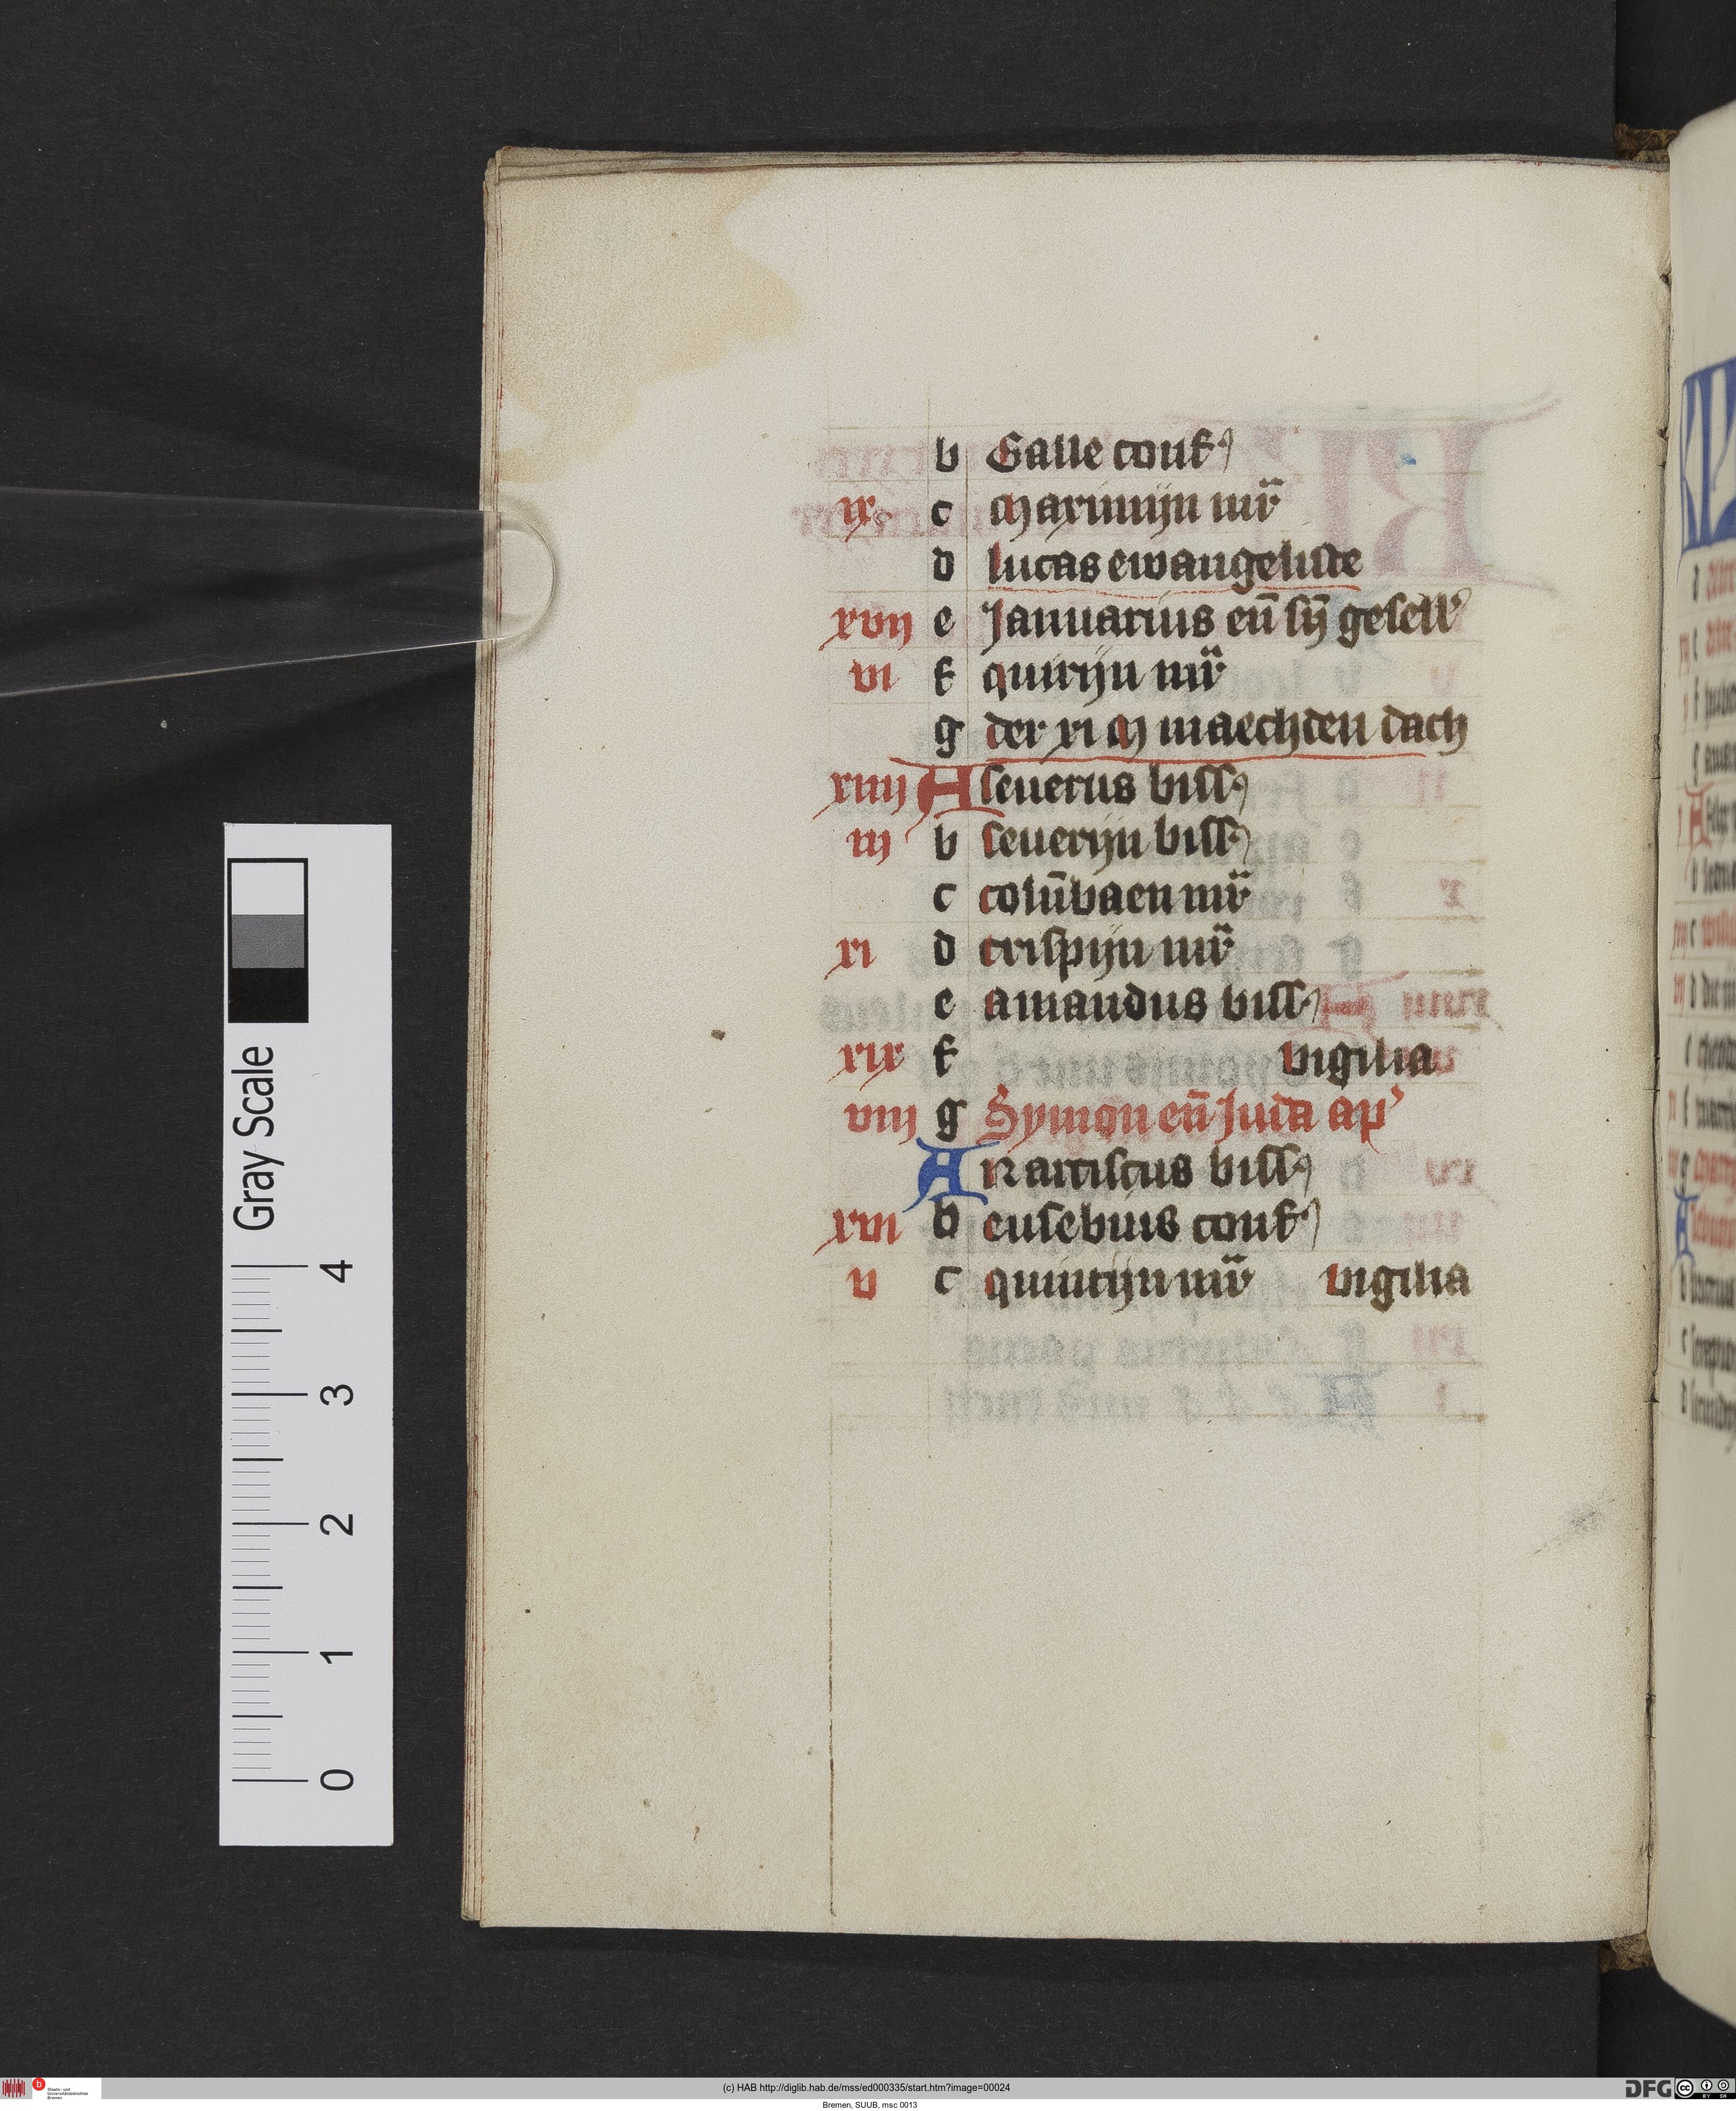 b Galle conf
ix c Maximijn mr̄
d lucas ewangeliste
xvij e Januarius eñ sȳ gesell
vi f quirijn mr̄
g der xi M maechden dach
xiiij A seuerus biss
iij b seuerijn biss
c colūbaen mr̄
xi d crispijn mr̄
e amandus biss
xix f vigilia
viij g Symon eñ Juda ap
A narciscus biss
xvi b eusebius conf
v c quintijn mr̄ vigilia
Gray Scale
4
3
2
1
0
(c) HAB http://diglib.hab.de/mss/ed000335/start.htm?image=00024
Bremen, SUUB, msc 0013
Staats- und
Universitätsbibliothek
Bremen
DFG
CC BY SA